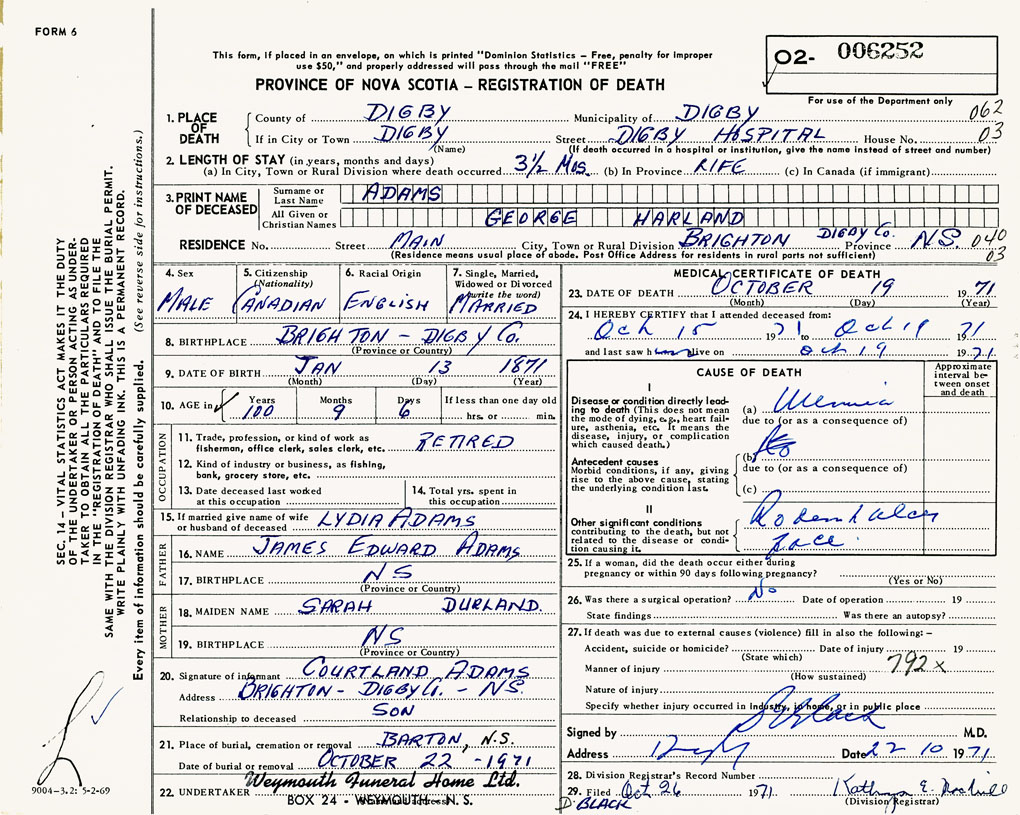 FORM 6
This form, if placed in an envelope, on which is printed "Dominion Statistics – Free, penalty for improper
use $50," and properly addressed will pass through the mail "FREE"
PROVINCE OF NOVA SCOTIA – REGISTRATION OF DEATH
02- 006252
For use of the Department only
062
03
1. PLACE OF DEATH
County of DIGBY Municipality of DIGBY
If in City or Town DIGBY Street DIGBY HOSPITAL House No.
(Name) (If death occurred in a hospital or institution, give the name instead of street and number)
2. LENGTH OF STAY (in years, months and days)
(a) In City, Town or Rural Division where death occurred 3½ Mos. (b) In Province RIFE (c) In Canada (if immigrant)
3. PRINT NAME OF DECEASED
Surname or Last Name ADAMS
All Given or Christian Names GEORGE HARLAND
RESIDENCE No. Street MAIN City, Town or Rural Division BRIGHTON DIGBY Co. Province N.S. 040
03
(Residence means usual place of abode. Post Office Address for residents in rural parts not sufficient)
4. Sex MALE
5. Citizenship (Nationality) CANADIAN
6. Racial Origin ENGLISH
7. Single, Married, Widowed or Divorced (write the word) MARRIED
8. BIRTHPLACE BRIGHTON – DIGBY Co.
(Province or Country)
9. DATE OF BIRTH JAN 13 1871
(Month) (Day) (Year)
10. AGE in Years 100 Months 9 Days 6 If less than one day old hrs. or min.
OCCUPATION
11. Trade, profession, or kind of work as fisherman, office clerk, sales clerk, etc. RETIRED
12. Kind of industry or business, as fishing, bank, grocery store, etc.
13. Date deceased last worked at this occupation
14. Total yrs. spent in this occupation
15. If married give name of wife or husband of deceased LYDIA ADAMS
FATHER
16. NAME JAMES EDWARD ADAMS
17. BIRTHPLACE NS
(Province or Country)
MOTHER
18. MAIDEN NAME SARAH DURLAND.
19. BIRTHPLACE NS
(Province or Country)
20. Signature of informant COURTLAND ADAMS
Address BRIGHTON – DIGBY Co. – NS.
Relationship to deceased SON
21. Place of burial, cremation or removal BARTON, N.S.
Date of burial or removal OCTOBER 22 - 1971
22. UNDERTAKER Weymouth Funeral Home Ltd.
BOX 24 - WEYMOUTH N. S.
MEDICAL CERTIFICATE OF DEATH
23. DATE OF DEATH OCTOBER 19 1971
(Month) (Day) (Year)
24. I HEREBY CERTIFY that I attended deceased from:
Oct 15 1971 to Oct 19 71
and last saw h alive on Oct 19 1971
CAUSE OF DEATH
Approximate interval between onset and death
I
Disease or condition directly leading to death (This does not mean the mode of dying, e.g., heart failure, asthenia, etc. It means the disease, injury, or complication which caused death.)
(a) Uremia
due to (or as a consequence of)
Antecedent causes
Morbid conditions, if any, giving rise to the above cause, stating the underlying condition last.
(b)
due to (or as a consequence of)
(c)
II
Other significant conditions contributing to the death, but not related to the disease or condition causing it.
Rodent ulcer
face
25. If a woman, did the death occur either during pregnancy or within 90 days following pregnancy?
(Yes or No)
26. Was there a surgical operation? No Date of operation 19
State findings Was there an autopsy?
27. If death was due to external causes (violence) fill in also the following: –
Accident, suicide or homicide? Date of injury 19
(State which)
Manner of injury 792 x
(How sustained)
Nature of injury
Specify whether injury occurred in industry, in home, or in public place
Signed by Black M.D.
Address Date 22 10 1971
28. Division Registrar's Record Number
29. Filed Oct 26 1971 Kathryn E.
D. BLACK (Division Registrar)
SEC. 14 – VITAL STATISTICS ACT MAKES IT THE DUTY
OF THE UNDERTAKER OR PERSON ACTING AS UNDER-
TAKER TO OBTAIN ALL THE PARTICULARS REQUIRED
IN THE "REGISTRATION OF DEATH" AND TO FILE THE
SAME WITH THE DIVISION REGISTRAR WHO SHALL ISSUE THE BURIAL PERMIT.
WRITE PLAINLY WITH UNFADING INK. THIS IS A PERMANENT RECORD.
Every item of information should be carefully supplied. (See reverse side for instructions.)
9004-3.2: 5-2-69